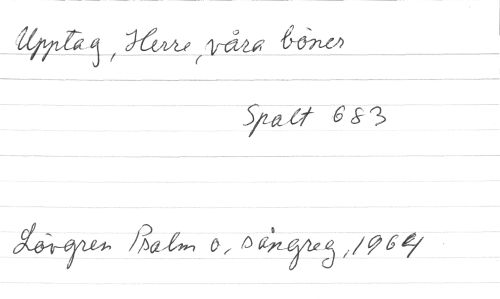 Upptag, Herre, våra böner
Spalt 683
Lövgren Psalm o. sångreg, 1964